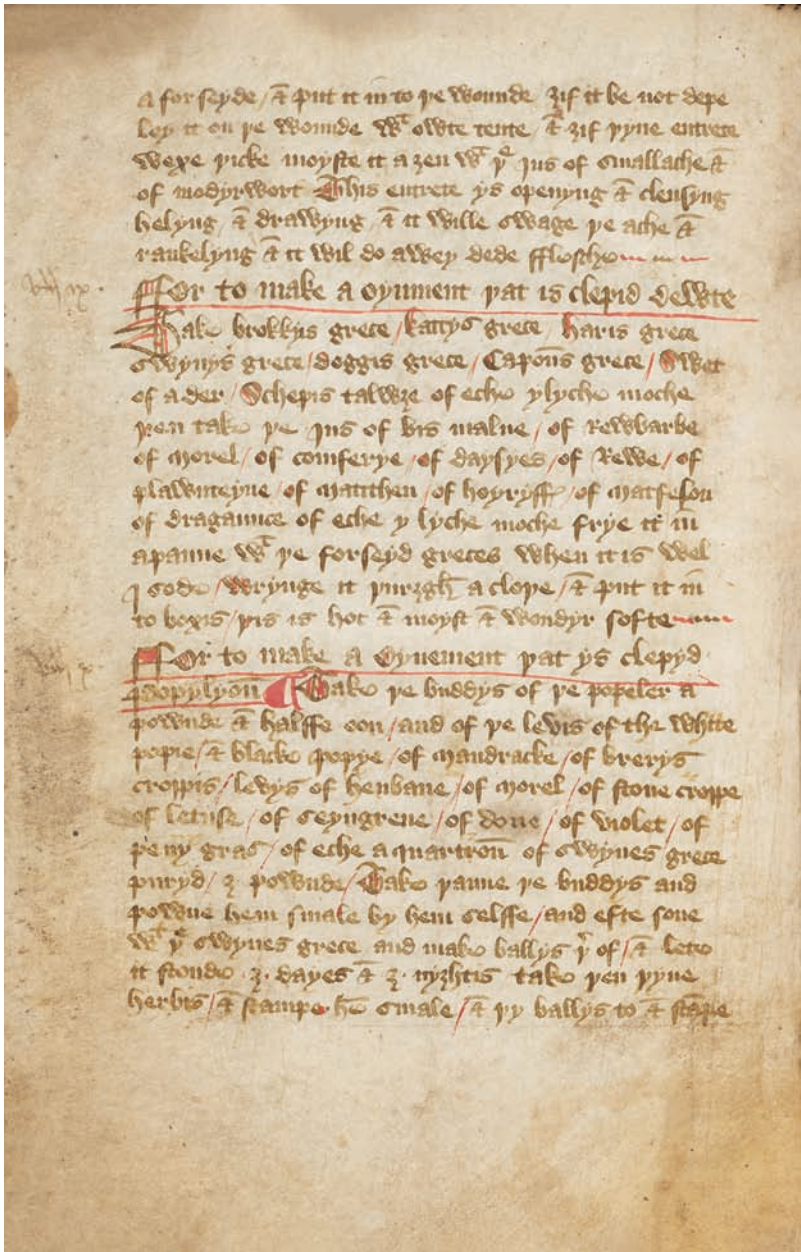 a for seyde / & put it in to þe wounde ȝif it be not depe
ley it on þe wounde wt owte tente / & ȝif þyne entrete
wexe þicke moyste it a ȝen wt þe jus of smallache &
of modyrwort This entrete ys openyng & clensyng
helyng & drawyng & it wille swage þe ache &
rankelyng & it wil do awey dede fflesche
FFor to make a oynment þat is clepid dewte
Take brokkys grece / kattys grece / haris grece
swynys grece / doggis grece / Capons grece / Swet
of a der / Schepis talwȝe of eche ylyche moche
þen take þe jus of bis malue / of Rewbarbe
of morel / of comferye / of daysyes / of Rewe / of
plawnteyne / of matthen / of hoyryff / of matfelon
of dragaunce of eche y lyche moche frye it in
a panne wt þe forseyd greces when it is wel
j sode / wrynge it þurȝgh a cloþe / & put it in
to boxis / þis is hot & moyst & wondyr softe
FFor to make a Oynement þat ys clepyd
popylyon ¶ Take þe buddys of þe popeler a
pownde & halffe oon / and of þe levis of the white
popie / & blacke popye / of mandracke / of brerys
croppis / levys of henbane / of morel / of stone croppe
of letuse / of seyngrene / of doue / of violet / of
peny gras / of eche a quartron of swynes grece
puryd / ȝ pownde / Take þanne þe buddys and
powne hem smale by hem selffe / and efte sone
wt þe swynes grece and make ballys þr of / & lete
it stonde ȝ dayes & ȝ nyȝhtis take þen þyne
herbis / & stampe hē smale / & þy ballys to & stāpe